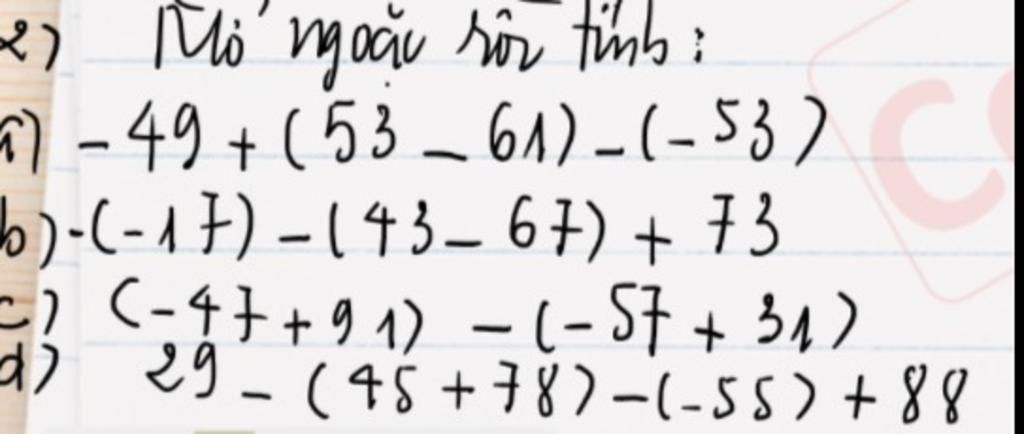 2) Mở ngoặc rồi tính:
a) - 49 + ( 53 - 61) - (- 53 )
b) -(-17) - (43 - 67) + 73
c) (-47 + 91) - (- 57 + 31)
d) 29 - (45 + 78) - (-55) + 88